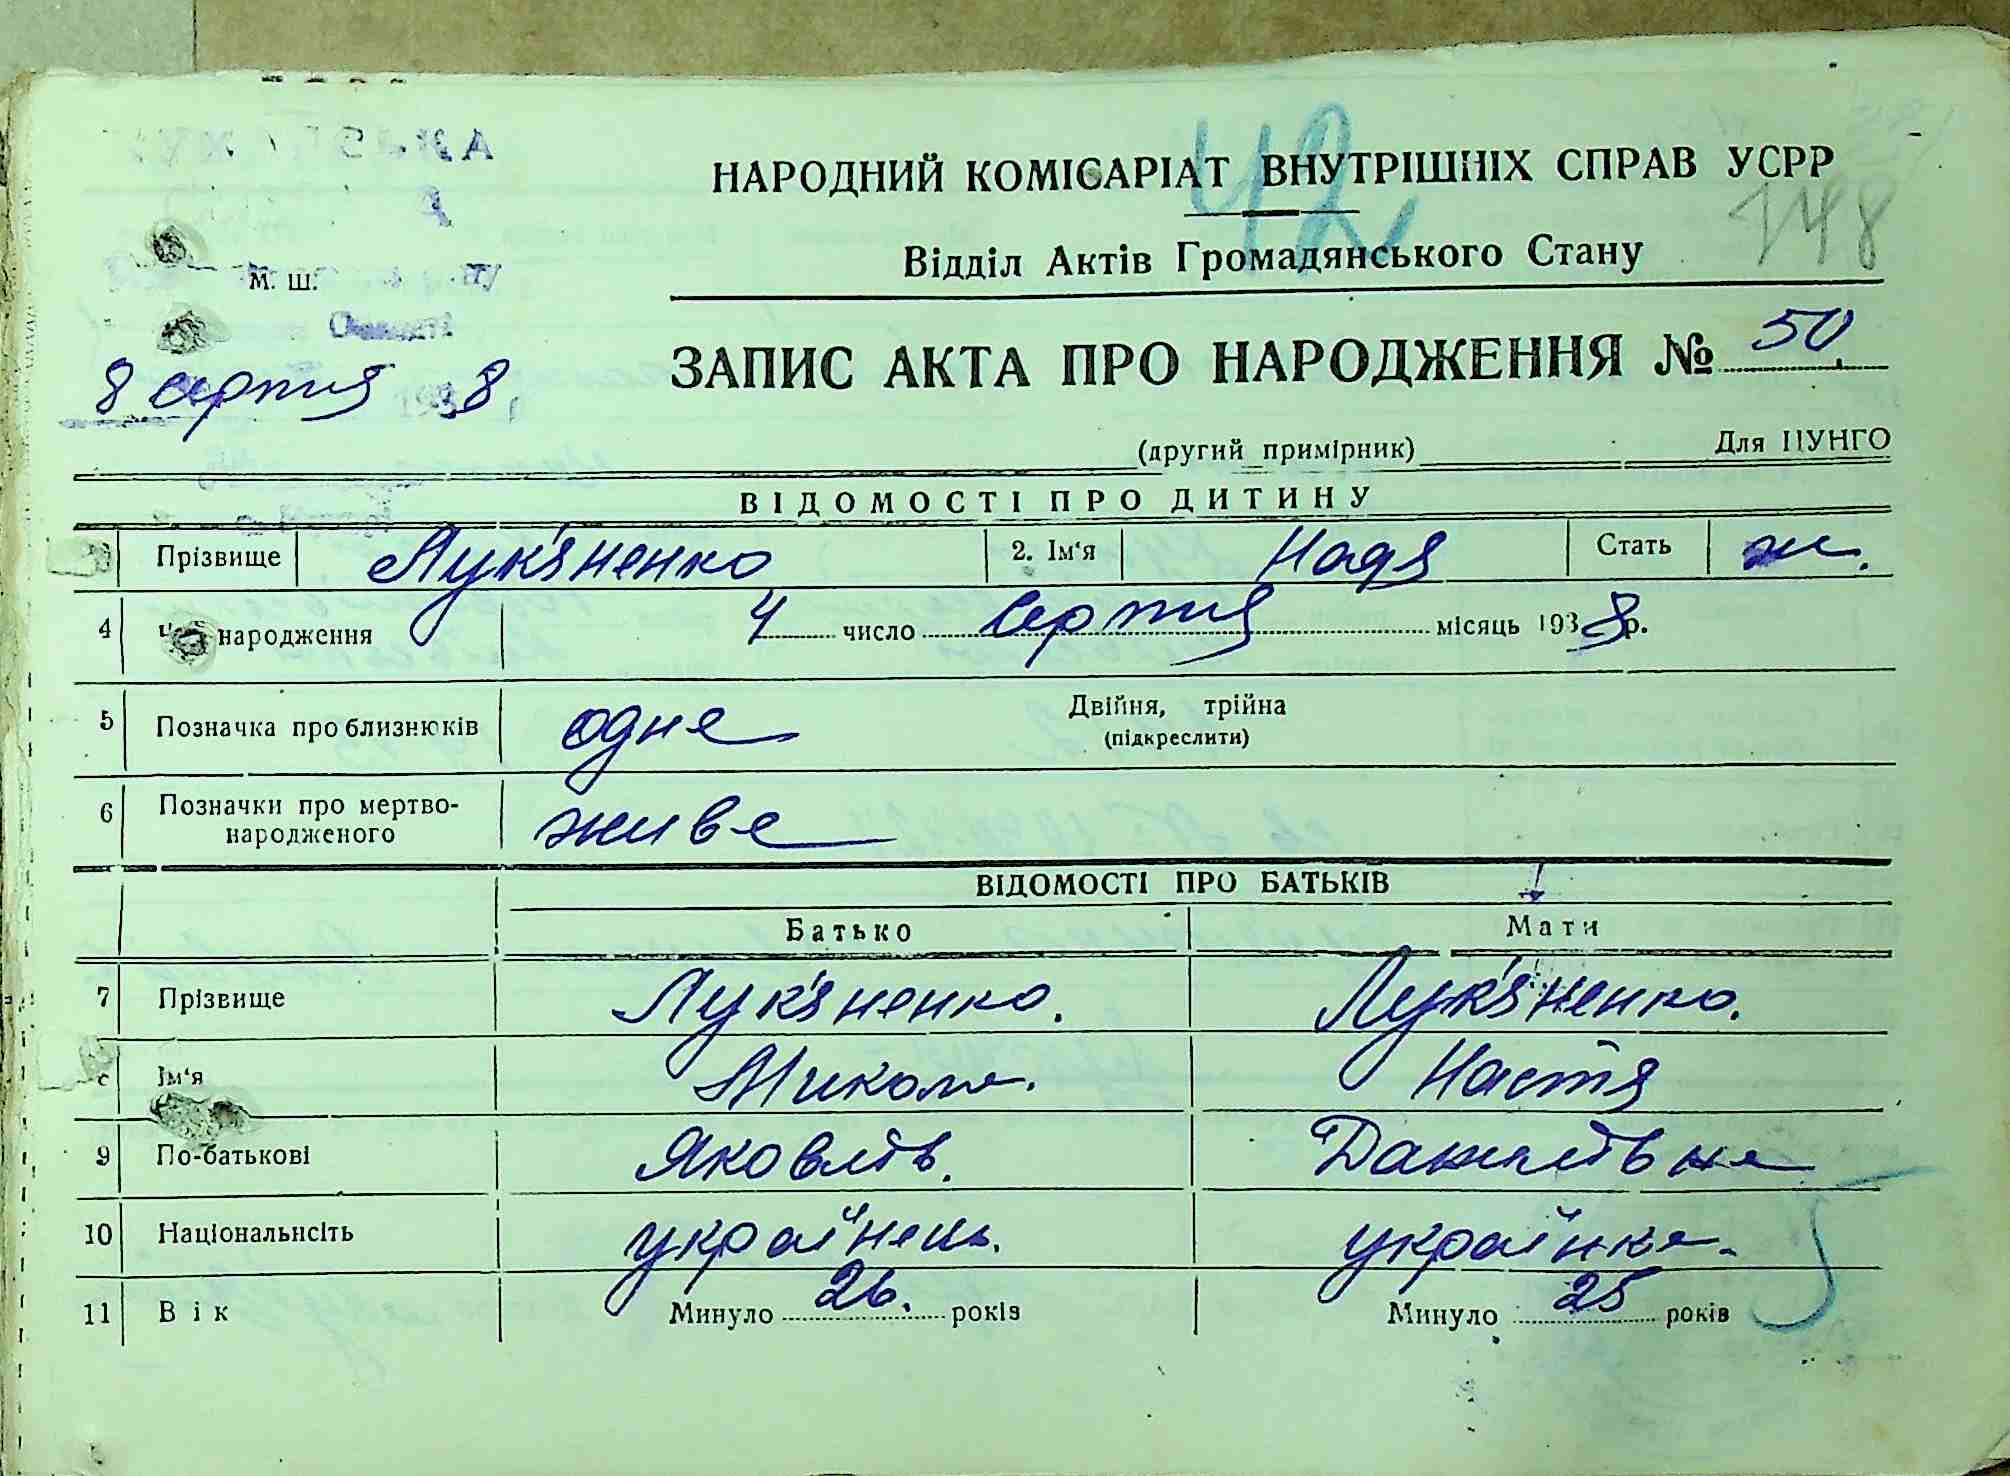 42
НАРОДНИЙ КОМІСАРІАТ ВНУТРІШНІХ СПРАВ УСРР
148
Відділ Актів Громадянського Стану
М. Ш.
ЗАПИС АКТА ПРО НАРОДЖЕННЯ № 50.
8 серпня 1938 р.
(другий примірник) Для ЦУНГО
ВІДОМОСТІ ПРО ДИТИНУ
Прізвище Лук'яненко 2. Ім'я Надя Стать ж.
4 Час народження 4 число серпня місяць 1938 р.
5 Позначка про близнюків одне Двійня, трійна
(підкреслити)
6 Позначки про мертво-
народженого живе
ВІДОМОСТІ ПРО БАТЬКІВ
Батько Мати
7 Прізвище Лук'яненко. Лук'яненко.
Ім'я Микола. Настя
9 По-батькові Яковліів. Данилівна
10 Національність українець. українка.
11 Вік Минуло 26. років Минуло 25 років